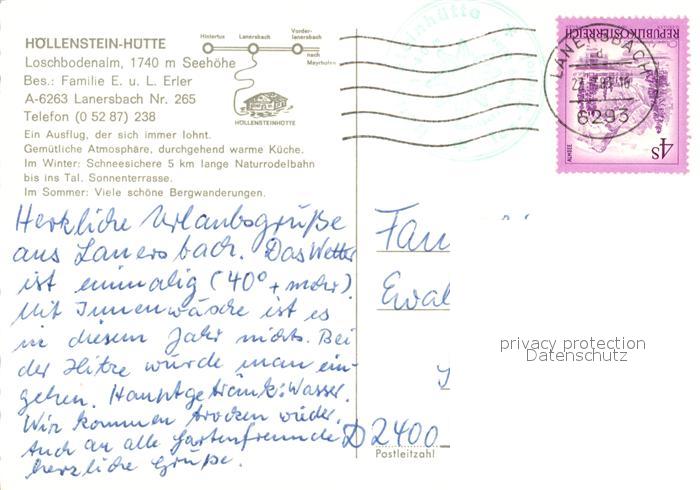 HÖLLENSTEIN-HÜTTE
Loschbodenalm, 1740 m Seehöhe
Bes.: Familie E. u. L. Erler
A-6263 Lanersbach Nr. 265
Telefon (0 52 87) 238
Ein Ausflug, der sich immer lohnt.
Gemütliche Atmosphäre, durchgehend warme Küche.
Im Winter: Schneesichere 5 km lange Naturrodelbahn
bis ins Tal. Sonnenterrasse.
Im Sommer: Viele schöne Bergwanderungen.
Hintertux
Lanersbach
Vorder-
lanersbach
nach
Mayrhofen
HÖLLENSTEINHÜTTE
REPUBLIK ÖSTERREICH
4S
ALMSEE
LANERSBACH
6293
Herzliche Urlaubsgrüße
aus Lanersbach. Das Wetter
ist einmalig (40° + mehr).
Mit Innenwäsche ist es
in diesem Jahr nichts. Bei
der Hitze würde man ein-
gehen. Hauptgetränk: Wasser.
Wir kommen trocken wieder.
Auch an alle Gartenfreunde
herzliche Grüße.
Fam
Ewal
D 2400
Postleitzahl
privacy protection
Datenschutz